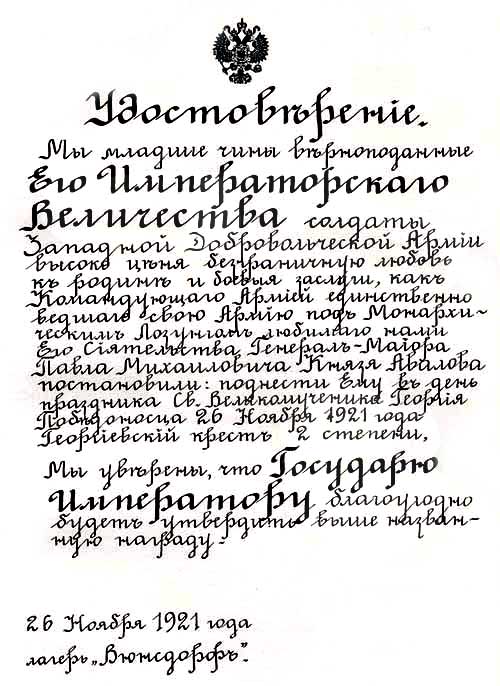 Удостовѣренiе.
Мы младшие чины вѣрноподанные
Его Императорскаго
Величества солдаты
Западной Добровольческой Армiи
высоко цѣня безграничную любовь
къ родинѣ и боевыя заслуги, какъ
Командующаго Армiей единственно
ведшаго свою Армiю подъ Монархи-
ческимъ Лозунгамъ любимаго нами
Его Сiятельства Генералъ-Маiора
Павла Михаиловича Князя Авалова
постановили: поднести Ему въ день
праздника Св. Великомученика Георгiя
Побѣдоносца 26 Ноября 1921 года
Георгiевскiй крестъ 2 степени,
Мы увѣрены, что Государю
Императору благоугодно
будетъ утвердить выше назван-
ную награду.
26 Ноября 1921 года
лагерь „Вюнсдорфъ".